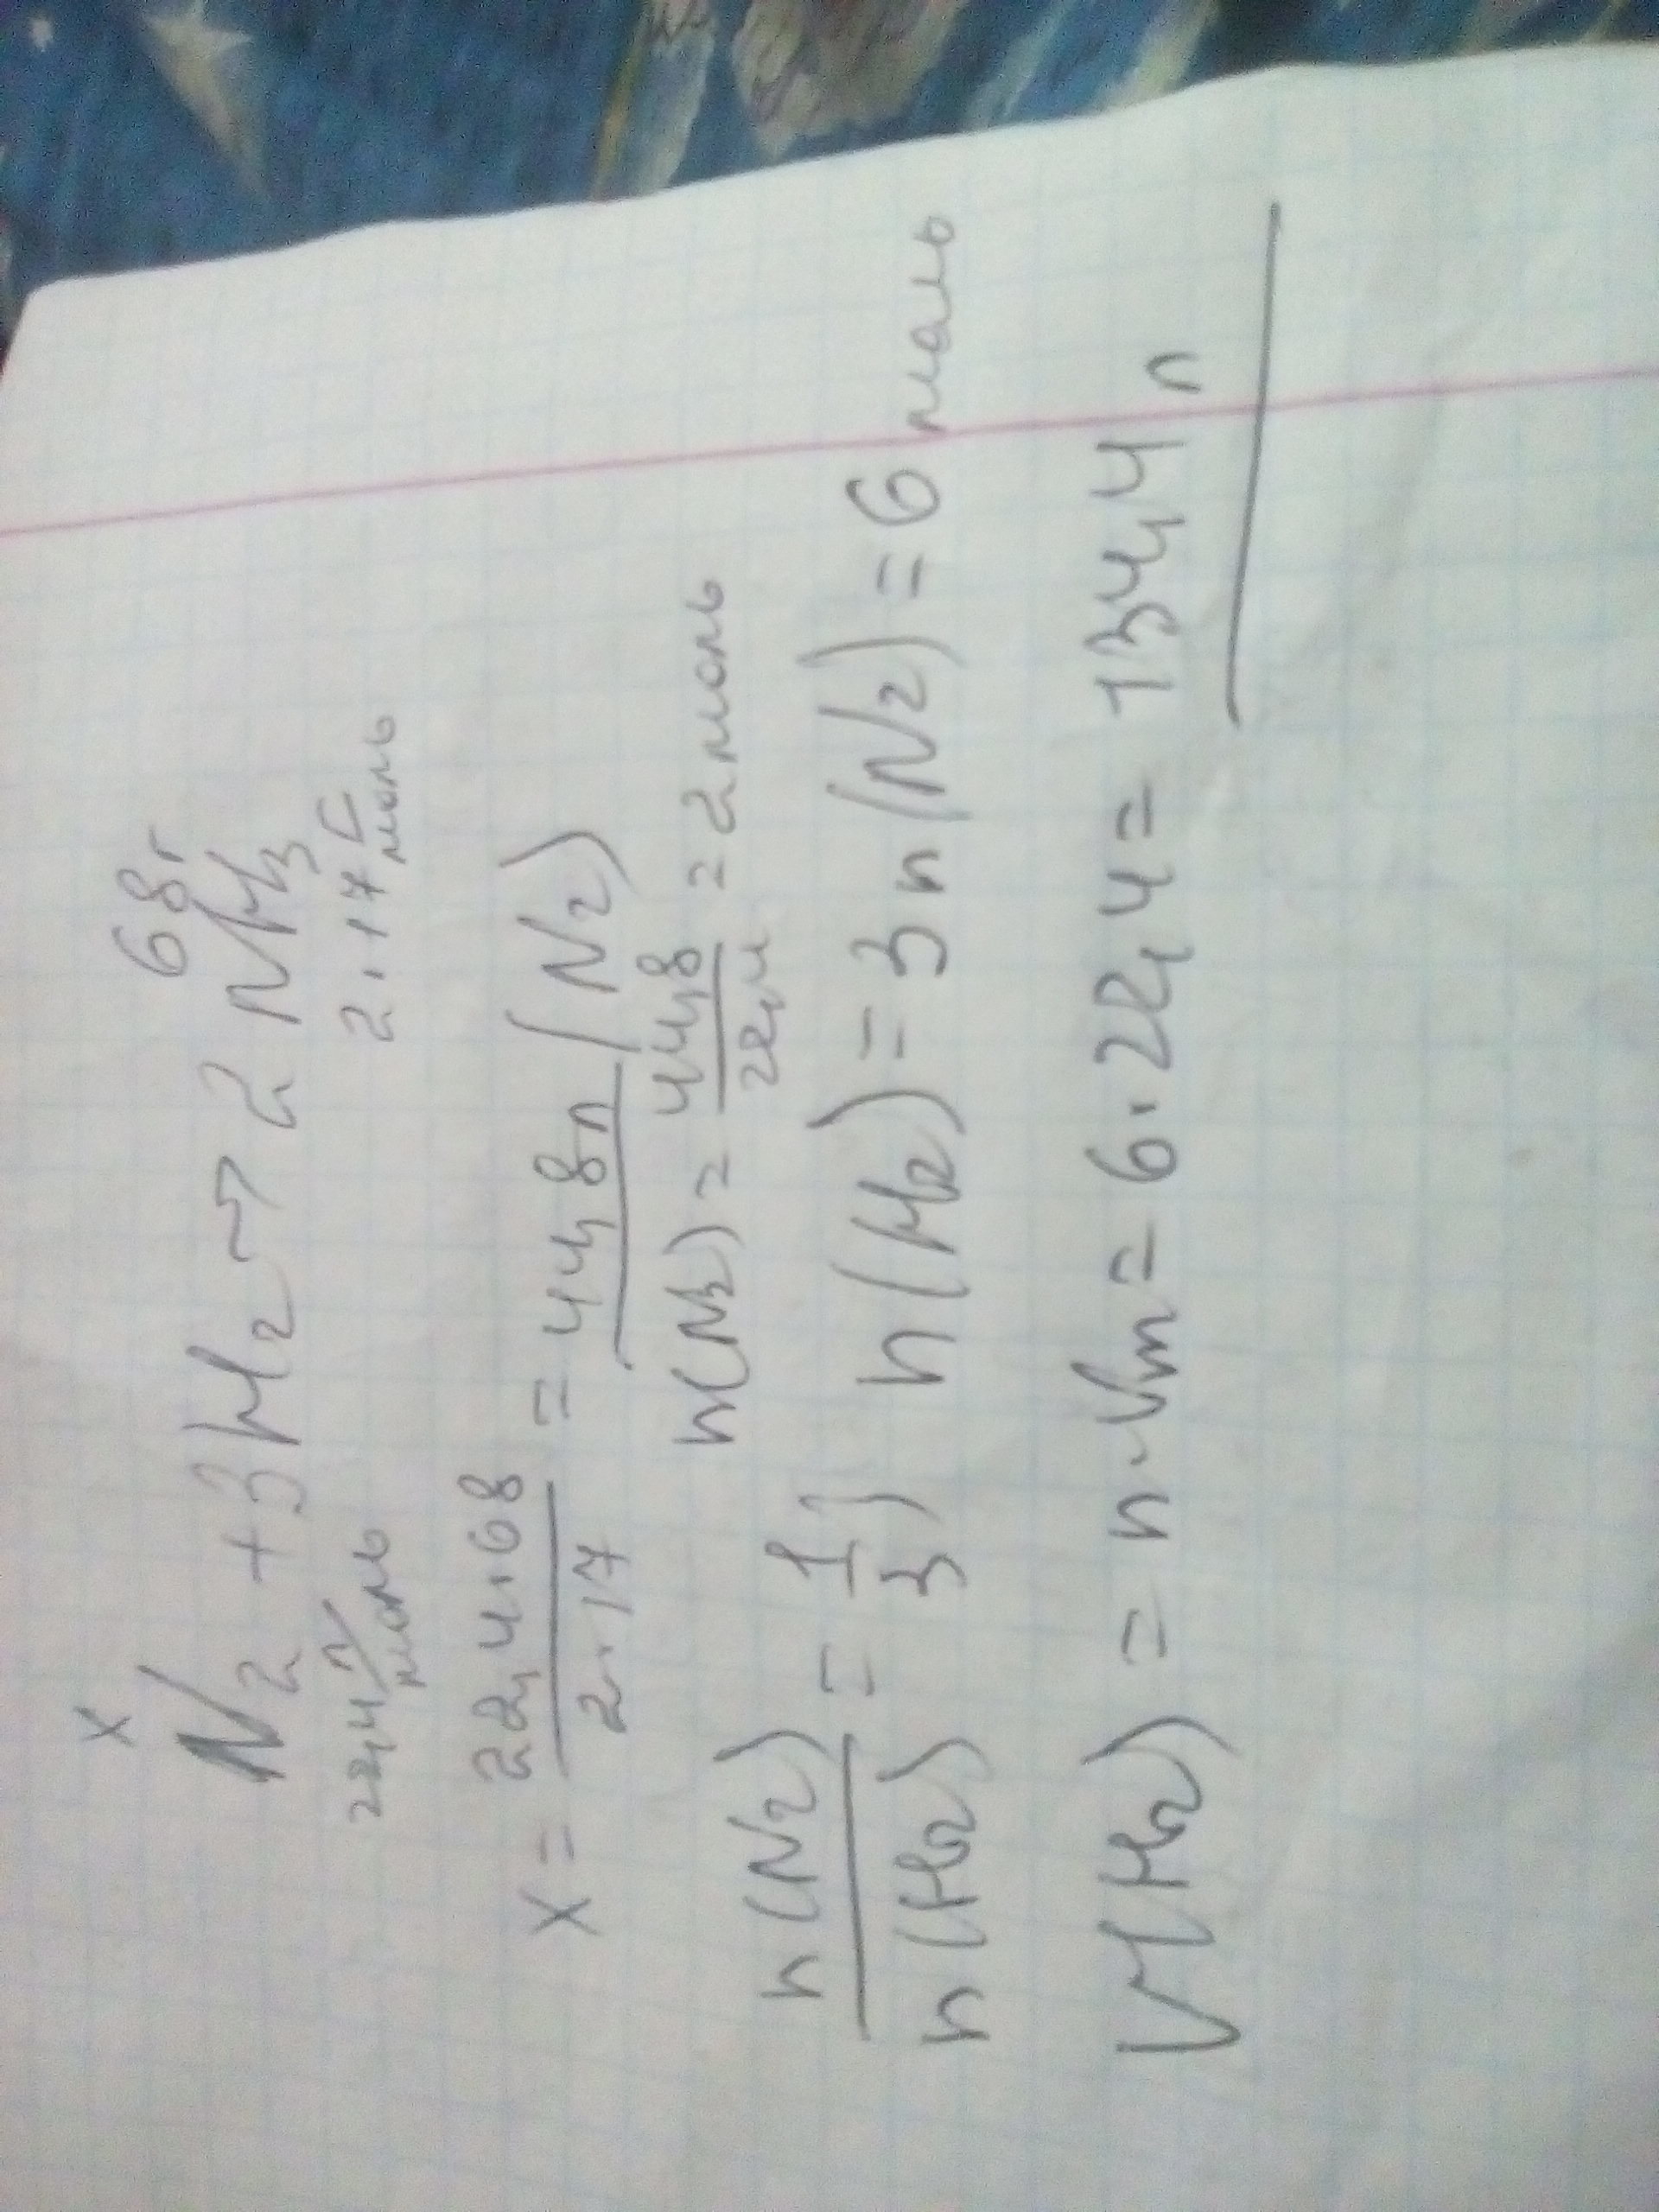 x 68г
N2 + 3H2 → 2 NH3
22,4 л/моль 2·17 г/моль
x = 22,4·68 / 2·17 = 44,8л (N2)
n(N2) = 44,8 / 22,4 = 2 моль
n(N2) / n(H2) = 1/3 ) n(H2) = 3n(N2) = 6 моль
V(H2) = n·Vm = 6·22,4 = 134,4 л